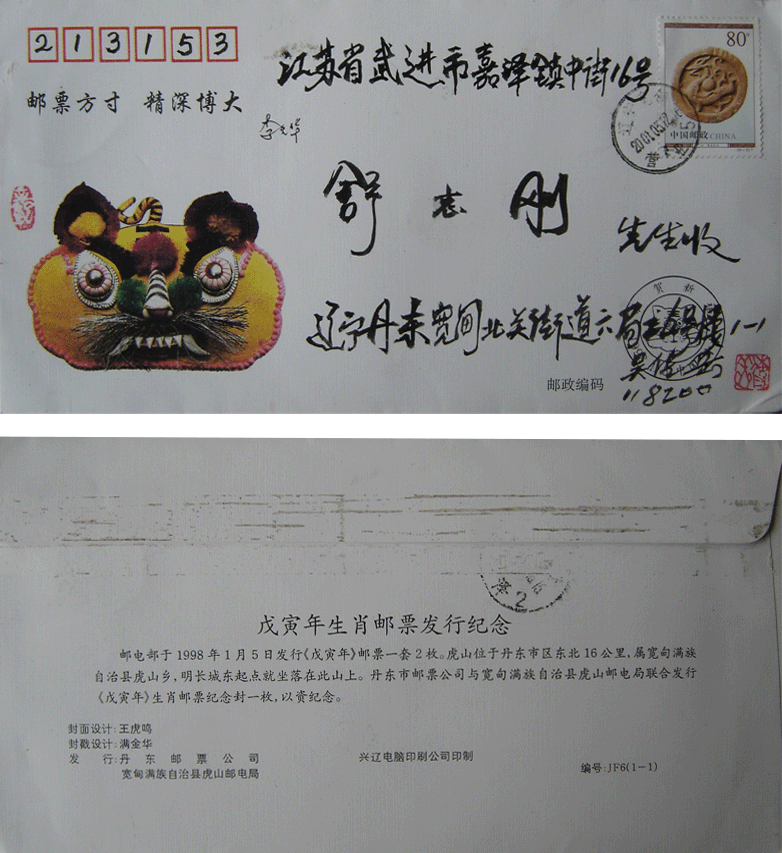 213153
江苏省武进市嘉泽镇中街16号
80
中国邮政CHINA
2001.05
邮票方寸 精深博大
李元华
舒志刚
先生收
贺新
辽宁丹东宽甸北关街道六局 1-1
吴
邮政编码
118200
2
戊寅年生肖邮票发行纪念
邮电部于1998年1月5日发行《戊寅年》邮票一套2枚。虎山位于丹东市区东北16公里，属宽甸满族
自治县虎山乡，明长城东起点就坐落在此山上。丹东市邮票公司与宽甸满族自治县虎山邮电局联合发行
《戊寅年》生肖邮票纪念封一枚，以资纪念。
封面设计：王虎鸣
封戳设计：满金华
发 行：丹东邮票公司
宽甸满族自治县虎山邮电局
兴辽电脑印刷公司印制
编号：JF6(1-1)